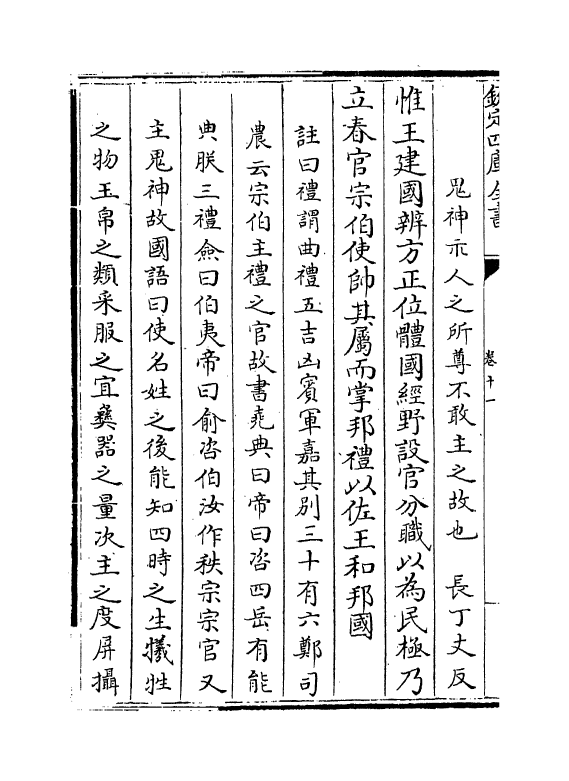 欽定四庫全書
卷十一
鬼神示人之所尊不敢主之故也　長丁丈反
惟王建國辨方正位體國經野設官分職以為民極乃
立春官宗伯使帥其屬而掌邦禮以佐王和邦國
註曰禮謂曲禮五吉凶賓軍嘉其别三十有六鄭司
農云宗伯主禮之官故書堯典曰帝曰咨四岳有能
典朕三禮僉曰伯夷帝曰俞咨伯汝作秩宗宗官又
主鬼神故國語曰使名姓之後能知四時之生犧牲
之物玉帛之類采服之宜彜器之量次主之度屏攝